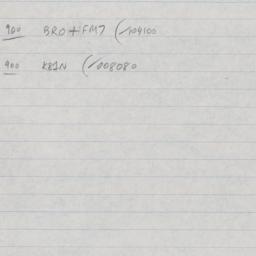 900 BRO+iFM7 (/104100
900 K81N (/008080